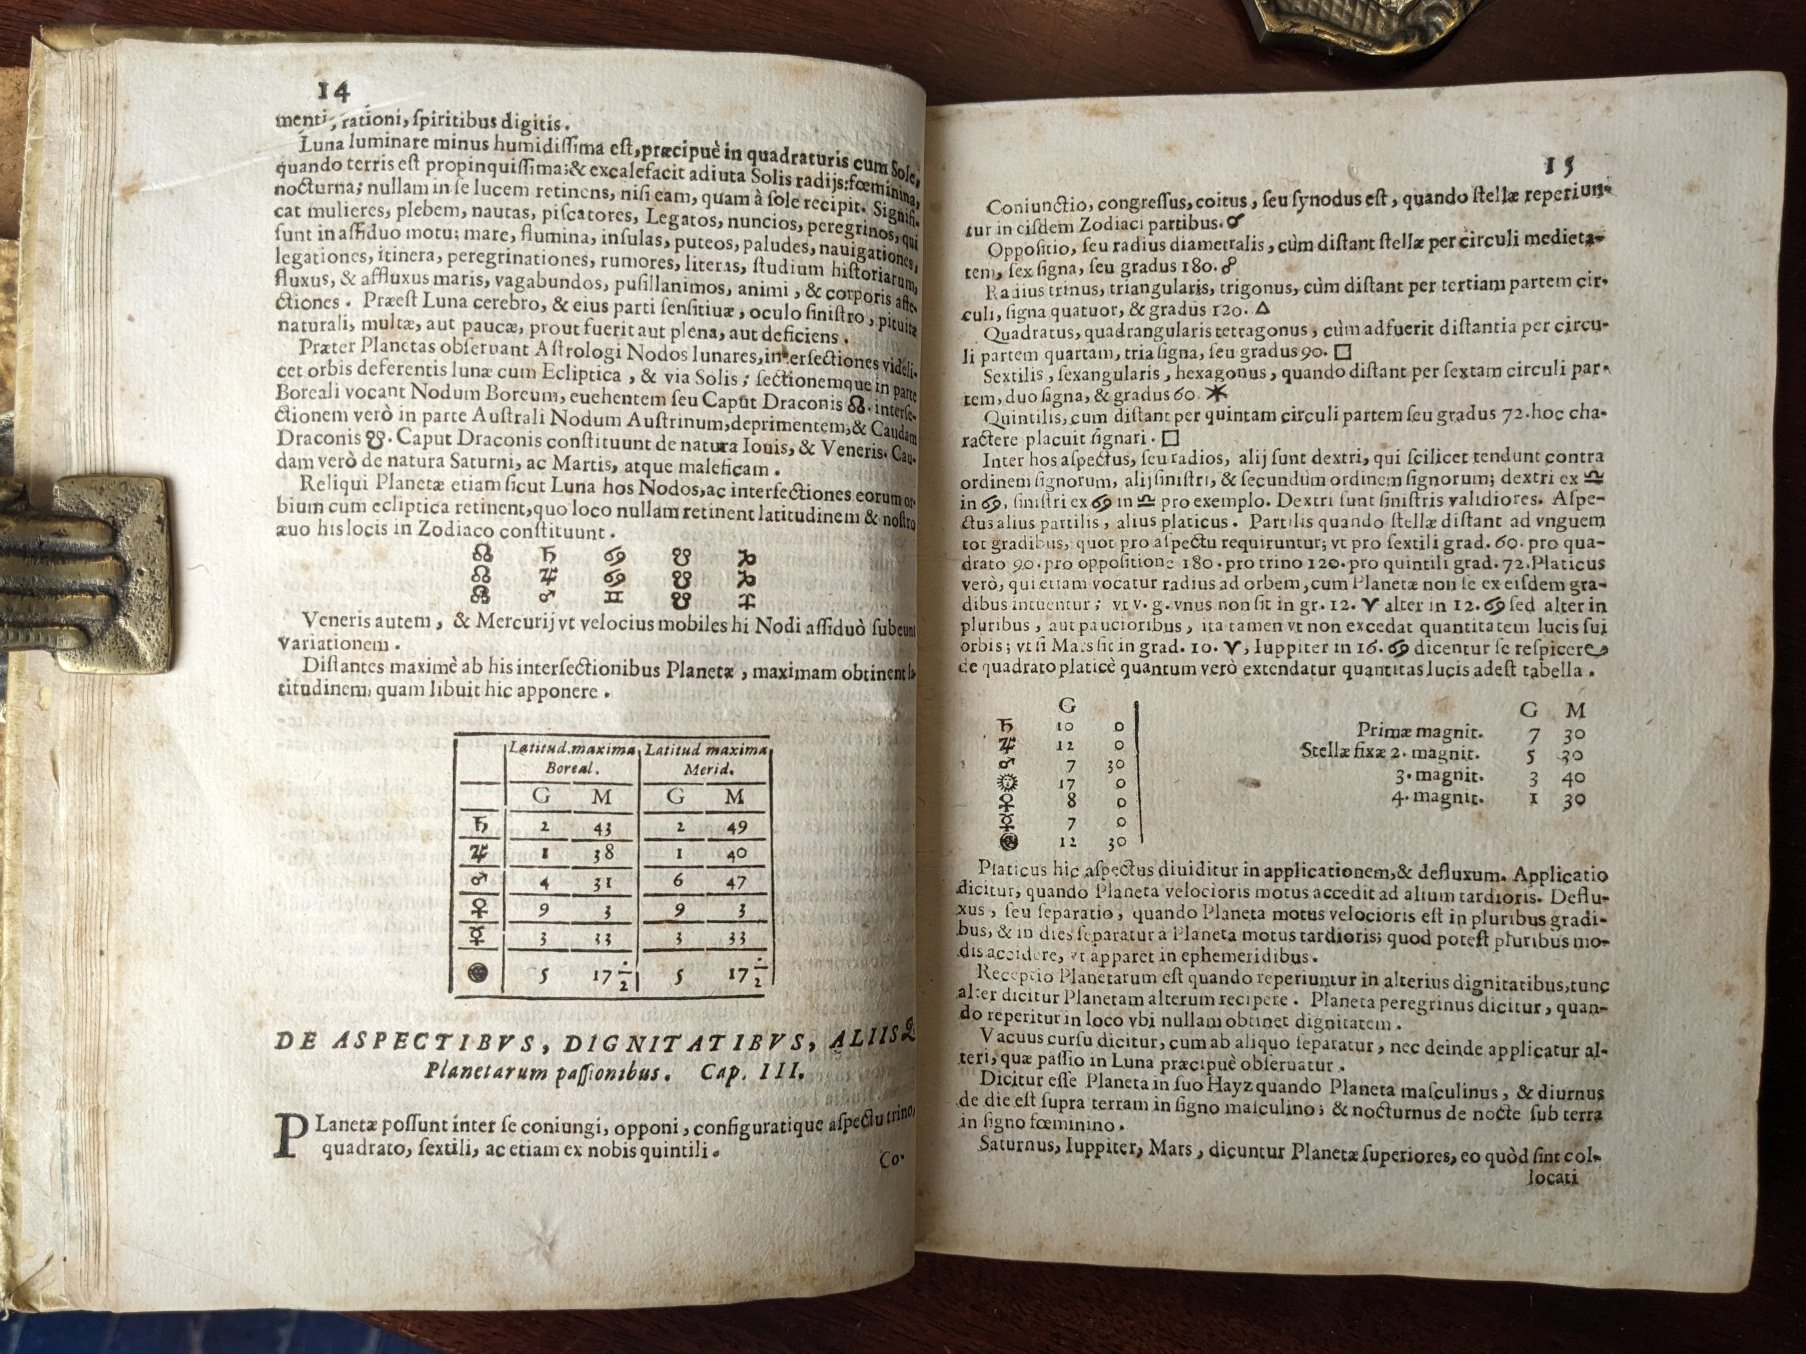 14
menti, rationi, ſpiritibus digitis.
Luna luminare minus humidiſſima eſt, præcipuè in quadraturis cum Sole,
quando terris eſt propinquiſſima;& excalefacit adiuta Solis radijs:fœminina,
nocturna; nullam in ſe lucem retinens, niſi eam, quam à ſole recipit. Signifi-
cat mulieres, plebem, nautas, piſcatores, Legatos, nuncios, peregrinos, qui
ſunt in aſſiduo motu; mare, flumina, inſulas, puteos, paludes, nauigationes,
legationes, itinera, peregrinationes, rumores, literas, ſtudium hiſtoriarum,
fluxus, & affluxus maris, vagabundos, puſillanimos, animi, & corporis affe-
ctiones. Præeſt Luna cerebro, & eius parti ſenſitiuæ, oculo ſiniſtro, pituitæ
naturali, multæ, aut paucæ, prout fuerit aut plena, aut deficiens.
Præter Planetas obſeruant Aſtrologi Nodos lunares, interſectiones videli-
cet orbis deferentis lunæ cum Ecliptica, & via Solis; ſectionemque in parte
Boreali vocant Nodum Boreum, euehentem ſeu Caput Draconis ☊. interſe-
ctionem verò in parte Auſtrali Nodum Auſtrinum, deprimentem,& Caudam
Draconis ☋. Caput Draconis conſtituunt de natura Iouis, & Veneris. Cau-
dam verò de natura Saturni, ac Martis, atque maleficam.
Reliqui Planetæ etiam ſicut Luna hos Nodos, ac interſectiones eorum or-
bium cum ecliptica retinent, quo loco nullam retinent latitudinem & noſtro
æuo his locis in Zodiaco conſtituunt.
☊ ♄ ♋ ☋ ♑
☊ ♃ ♋ ☋ ♑
☊ ♂ ♊ ☋ ♐
Veneris autem, & Mercurij vt velocius mobiles hi Nodi aſſiduò ſubeunt
variationem.
Diſtantes maximè ab his interſectionibus Planetæ, maximam obtinent la-
titudinem, quam libuit hic apponere.
Latitud. maxima Latitud maxima
Boreal. Merid.
G M G M
♄ 2 43 2 49
♃ 1 38 1 40
♂ 4 31 6 47
♀ 9 3 9 3
☿ 3 33 3 33
☽ 5 17 1/2 5 17 1/2
DE ASPECTIBVS, DIGNITATIBVS, ALIISQ;
Planetarum paſſionibus. Cap. III.
PLanetæ poſſunt inter ſe coniungi, opponi, configuratique aſpectu trino,
quadrato, ſextili, ac etiam ex nobis quintili.
Co-
15
Coniunctio, congreſſus, coitus, ſeu ſynodus eſt, quando ſtellæ reperiun-
tur in eiſdem Zodiaci partibus. ☌
Oppoſitio, ſeu radius diametralis, cùm diſtant ſtellæ per circuli medieta-
tem, ſex ſigna, ſeu gradus 180. ☍
Radius trinus, triangularis, trigonus, cùm diſtant per tertiam partem cir-
culi, ſigna quatuor, & gradus 120. △
Quadratus, quadrangularis tetragonus, cùm adfuerit diſtantia per circu-
li partem quartam, tria ſigna, ſeu gradus 90. □
Sextilis, ſexangularis, hexagonus, quando diſtant per ſextam circuli par-
tem, duo ſigna, & gradus 60. ✶
Quintilis, cum diſtant per quintam circuli partem ſeu gradus 72. hoc cha-
ractere placuit ſignari. □
Inter hos aſpectus, ſeu radios, alij ſunt dextri, qui ſcilicet tendunt contra
ordinem ſignorum, alij ſiniſtri, & ſecundùm ordinem ſignorum; dextri ex ♎
in ♋, ſiniſtri ex ♋ in ♎ pro exemplo. Dextri ſunt ſiniſtris validiores. Aſpe-
ctus alius partilis, alius platicus. Partilis quando ſtellæ diſtant ad vnguem
tot gradibus, quot pro aſpectu requiruntur; vt pro ſextili grad. 60. pro qua-
drato 90. pro oppoſitione 180. pro trino 120. pro quintili grad. 72. Platicus
verò, qui etiam vocatur radius ad orbem, cum Planetæ non ſe ex eiſdem gra-
dibus intuentur; vt v. g. vnus non ſit in gr. 12. ♈ alter in 12. ♋ ſed alter in
pluribus, aut paucioribus, ita tamen vt non excedat quantitatem lucis ſui
orbis; vt ſi Mars ſit in grad. 10. ♈, Iuppiter in 16. ♋ dicentur ſe reſpicere
de quadrato platicè quantum verò extendatur quantitas lucis adeſt tabella.
G
♄ 10 0
♃ 12 0
♂ 7 30
☉ 17 0
♀ 8 0
☿ 7 0
☽ 12 30
G M
Primæ magnit. 7 30
Stellæ fixæ 2. magnit. 5 30
3. magnit. 3 40
4. magnit. 1 30
Platicus hic aſpectus diuiditur in applicationem,& defluxum. Applicatio
dicitur, quando Planeta velocioris motus accedit ad alium tardioris. Deflu-
xus, ſeu ſeparatio, quando Planeta motus velocioris eſt in pluribus gradi-
bus, & in dies ſeparatur à Planeta motus tardioris; quod poteſt pluribus mo-
dis accidere, vt apparet in ephemeridibus.
Receptio Planetarum eſt quando reperiuntur in alterius dignitatibus, tunc
alter dicitur Planetam alterum recipere. Planeta peregrinus dicitur, quan-
do reperitur in loco vbi nullam obtinet dignitatem.
Vacuus curſu dicitur, cum ab aliquo ſeparatur, nec deinde applicatur al-
teri, quæ paſſio in Luna præcipuè obſeruatur.
Dicitur eſſe Planeta in ſuo Hayz quando Planeta maſculinus, & diurnus
de die eſt ſupra terram in ſigno maſculino; & nocturnus de nocte ſub terra
in ſigno fœminino.
Saturnus, Iuppiter, Mars, dicuntur Planetæ ſuperiores, eo quòd ſint col-
locati